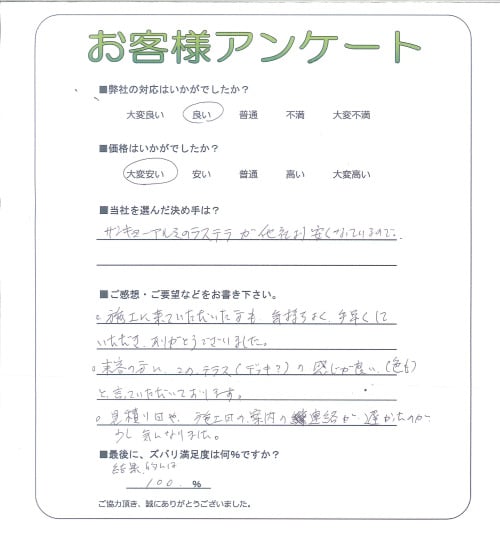 お客様アンケート
■弊社の対応はいかがでしたか？
大変良い 良い 普通 不満 大変不満
■価格はいかがでしたか？
大変安い 安い 普通 高い 大変高い
■当社を選んだ決め手は？
サンキューアルミのラステラが他社より安くなっているので。
■ご感想・ご要望などをお書き下さい。
○施工に来ていただいた方も気持ちよく、手早くして
いただき、ありがとうございました。
○来客の方に、この、テラス(デッキ?)の感じが良い(色も)
と言っていただいております。
○見積り日や、施工日の案内の連絡が遅かたのが
少し気になりました。
■最後に、ズバリ満足度は何%ですか？
結果的には
100 %
ご協力頂き、誠にありがとうございました。